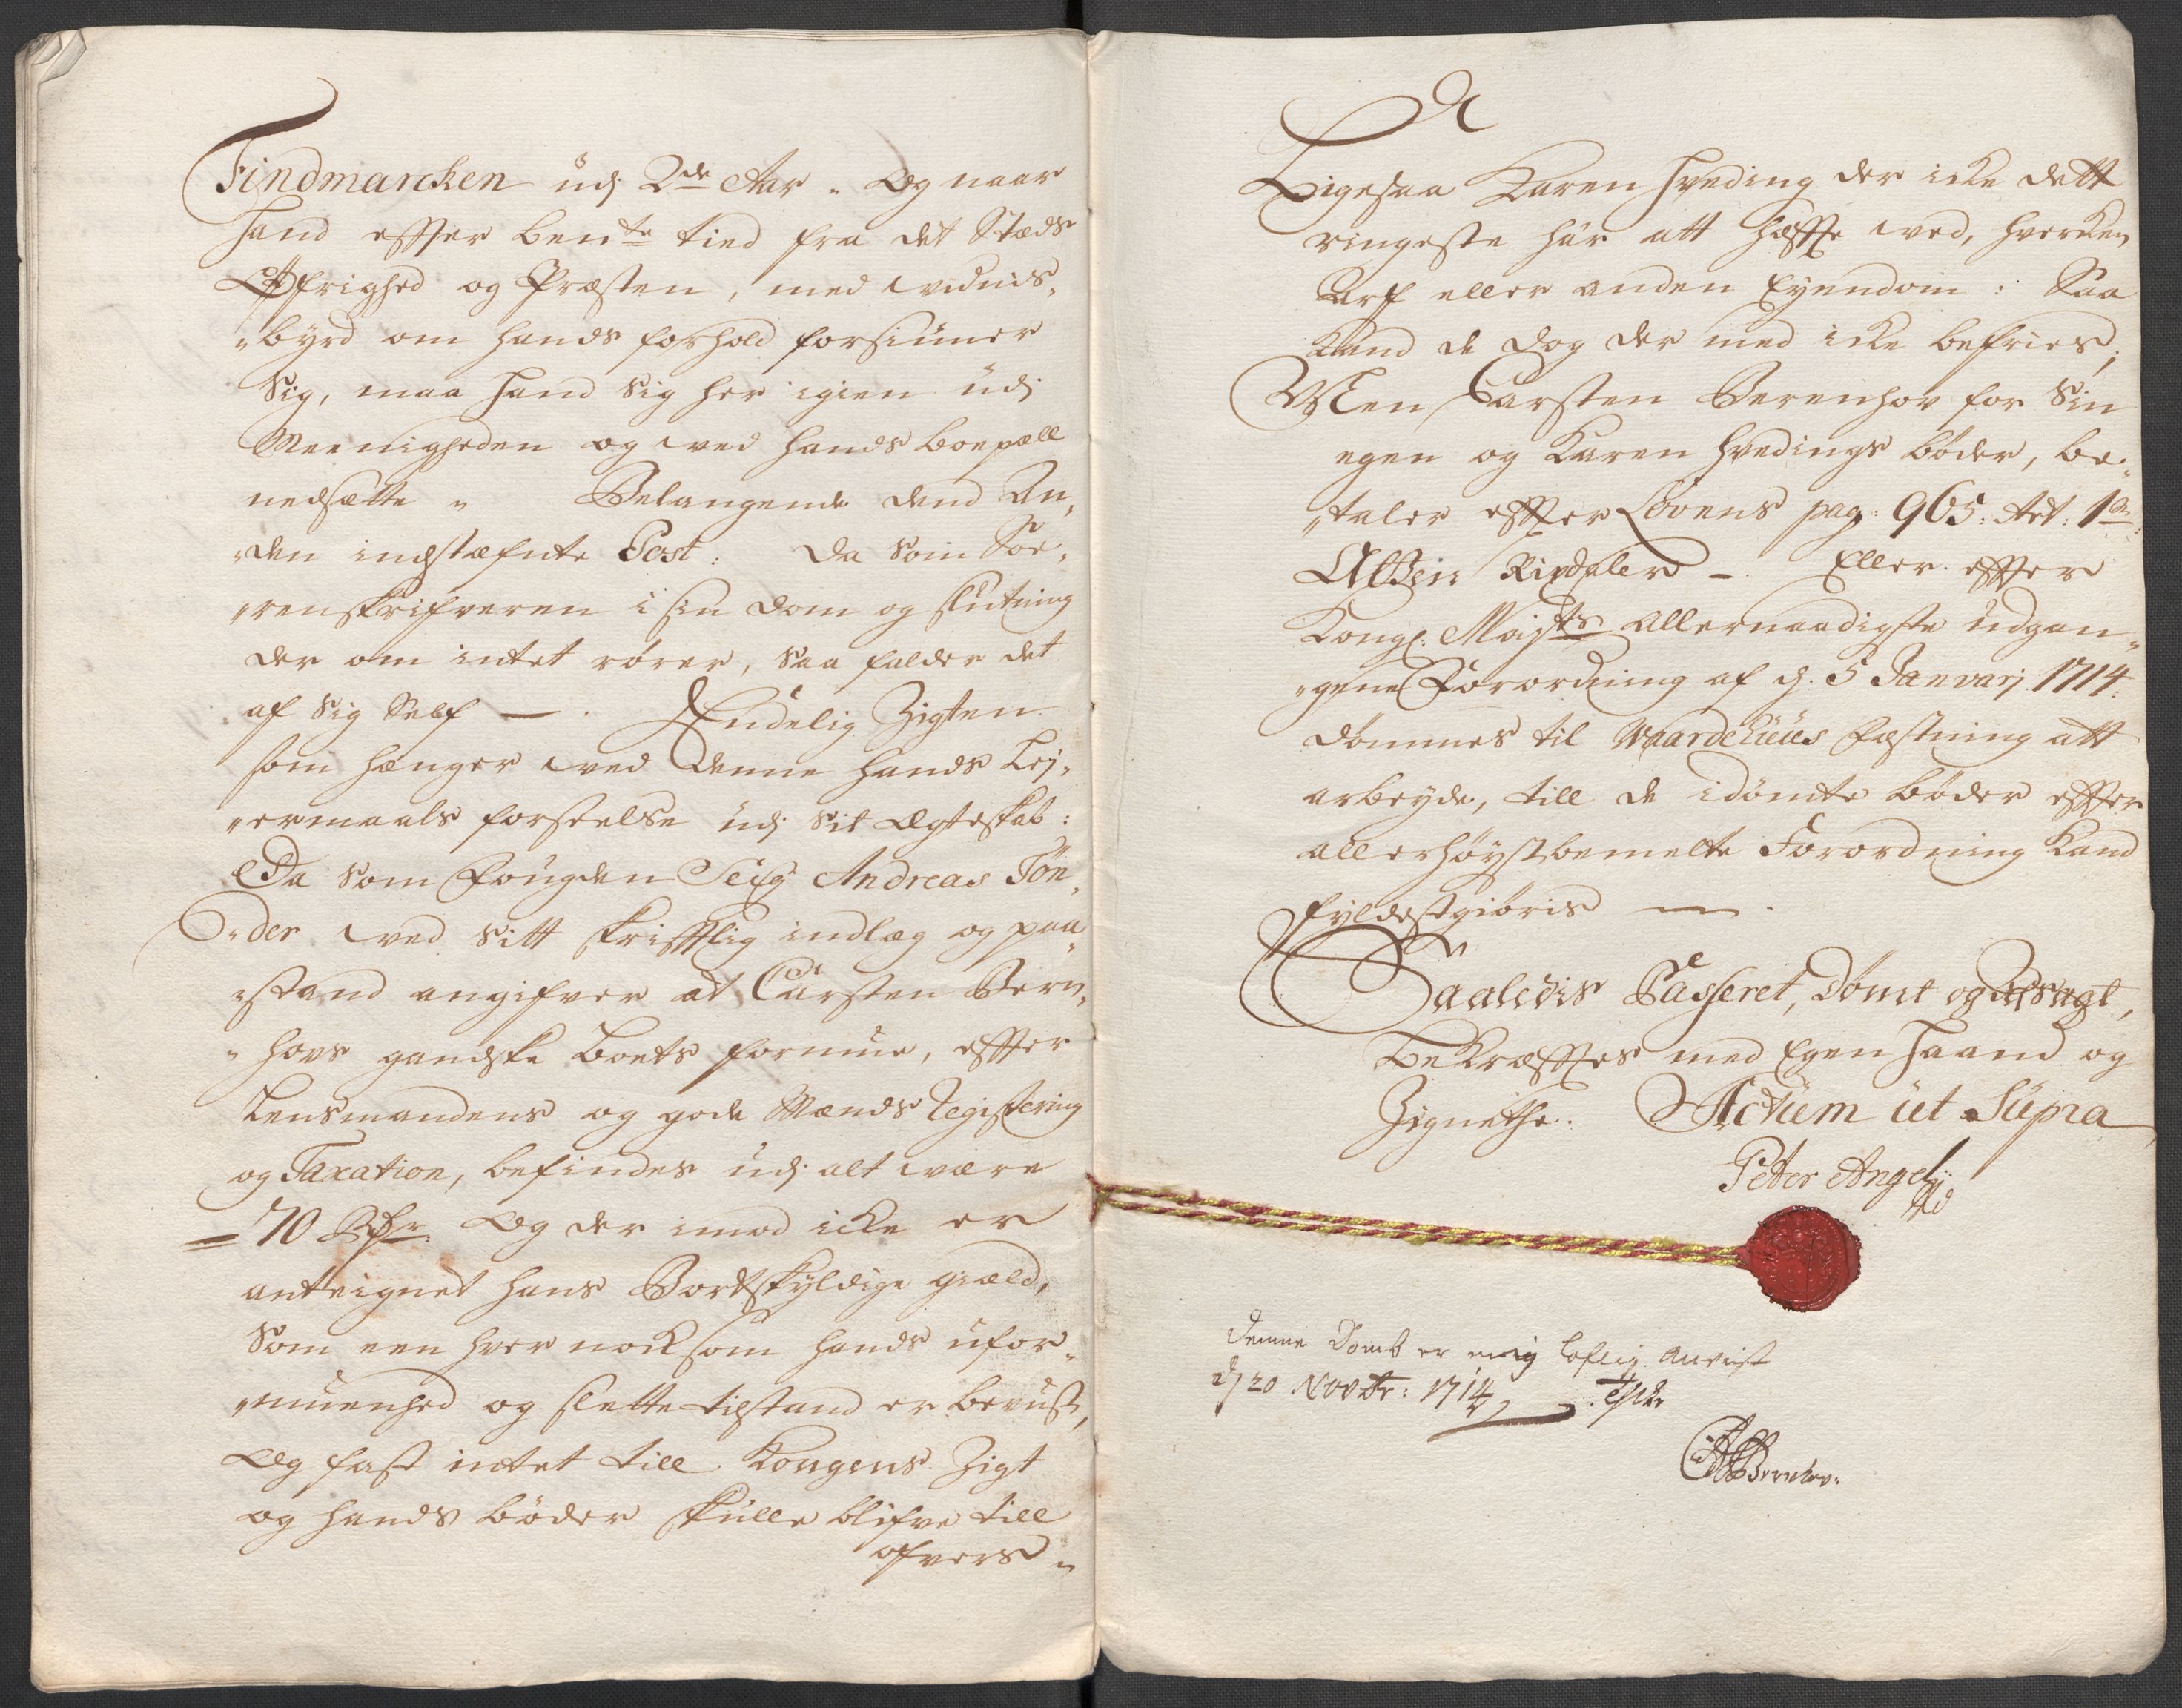 Findmarcken udj 2de Aar. Og naar
hand effter bente tied fra det Stæds
Øffrighed og Præsten, med vidnis„
„byrd om hands forhold forsiuner
sig, maa hand sig her igien udj
Meenigheden og ved hands boepæll
nedsætte „ Belangende dend An„
„den indstæfnte Post: Da som Soe„
„renskrifveren i sin dom og slutning
der om intet rører, saa falder det
af sig Self —. Endelig Zigten
som henger ved denne hands Lej„
„ermaals forseelse udj sit Ægteskab:
Da som Fougden Seig Andreas Tøn„
„der ved sitt skrifftlig indlæg og paa„
„stand angifver at Carsten Bern„
„hovs gandske Boets formue, effter
Lensmandens og gode Mænds Registering
og Taxation, befindes udj alt være
= 70 Rdr. Og der imod icke er
anteignet hans Bortskyldige gield,
Som een hver nock som hands ufor„
„muenhed og slette tilstand er bevust,
Og fast intet till Kongens Zigt
og hands bøder skulle blifve till
ofvers „
Ligesaa Karen Hveding der icke dett
ringeste har att hæffte ved, hverken
Arf eller anden Eyendom: Saa
kand de dog der med icke befries;
Men Carsten Berenhov for Sin
egen og Karen Hvedings bøder, be„
„taler effter Lovens pag: 965: Art: 1
Rixdaler —. Eller effter
Kongl. Majts allernaadigste udgan„
„gene Forordning af d. 5 Janvarj 1714.
dømmes til Waardehuus Fæstning att
arbeyde, till de idømte bøder effter
allerhøystbemelte Forordning kand
fyldestgiøris —.
Saaledis Passeret, Dømt og Afsagt,
Bekræfftes med Egen Haand og
Zignethe. Actum ut Supra
Peter Angel
Denne Domb er mig loflig anvist
d 20 Novbr: 1714
Bernhov.